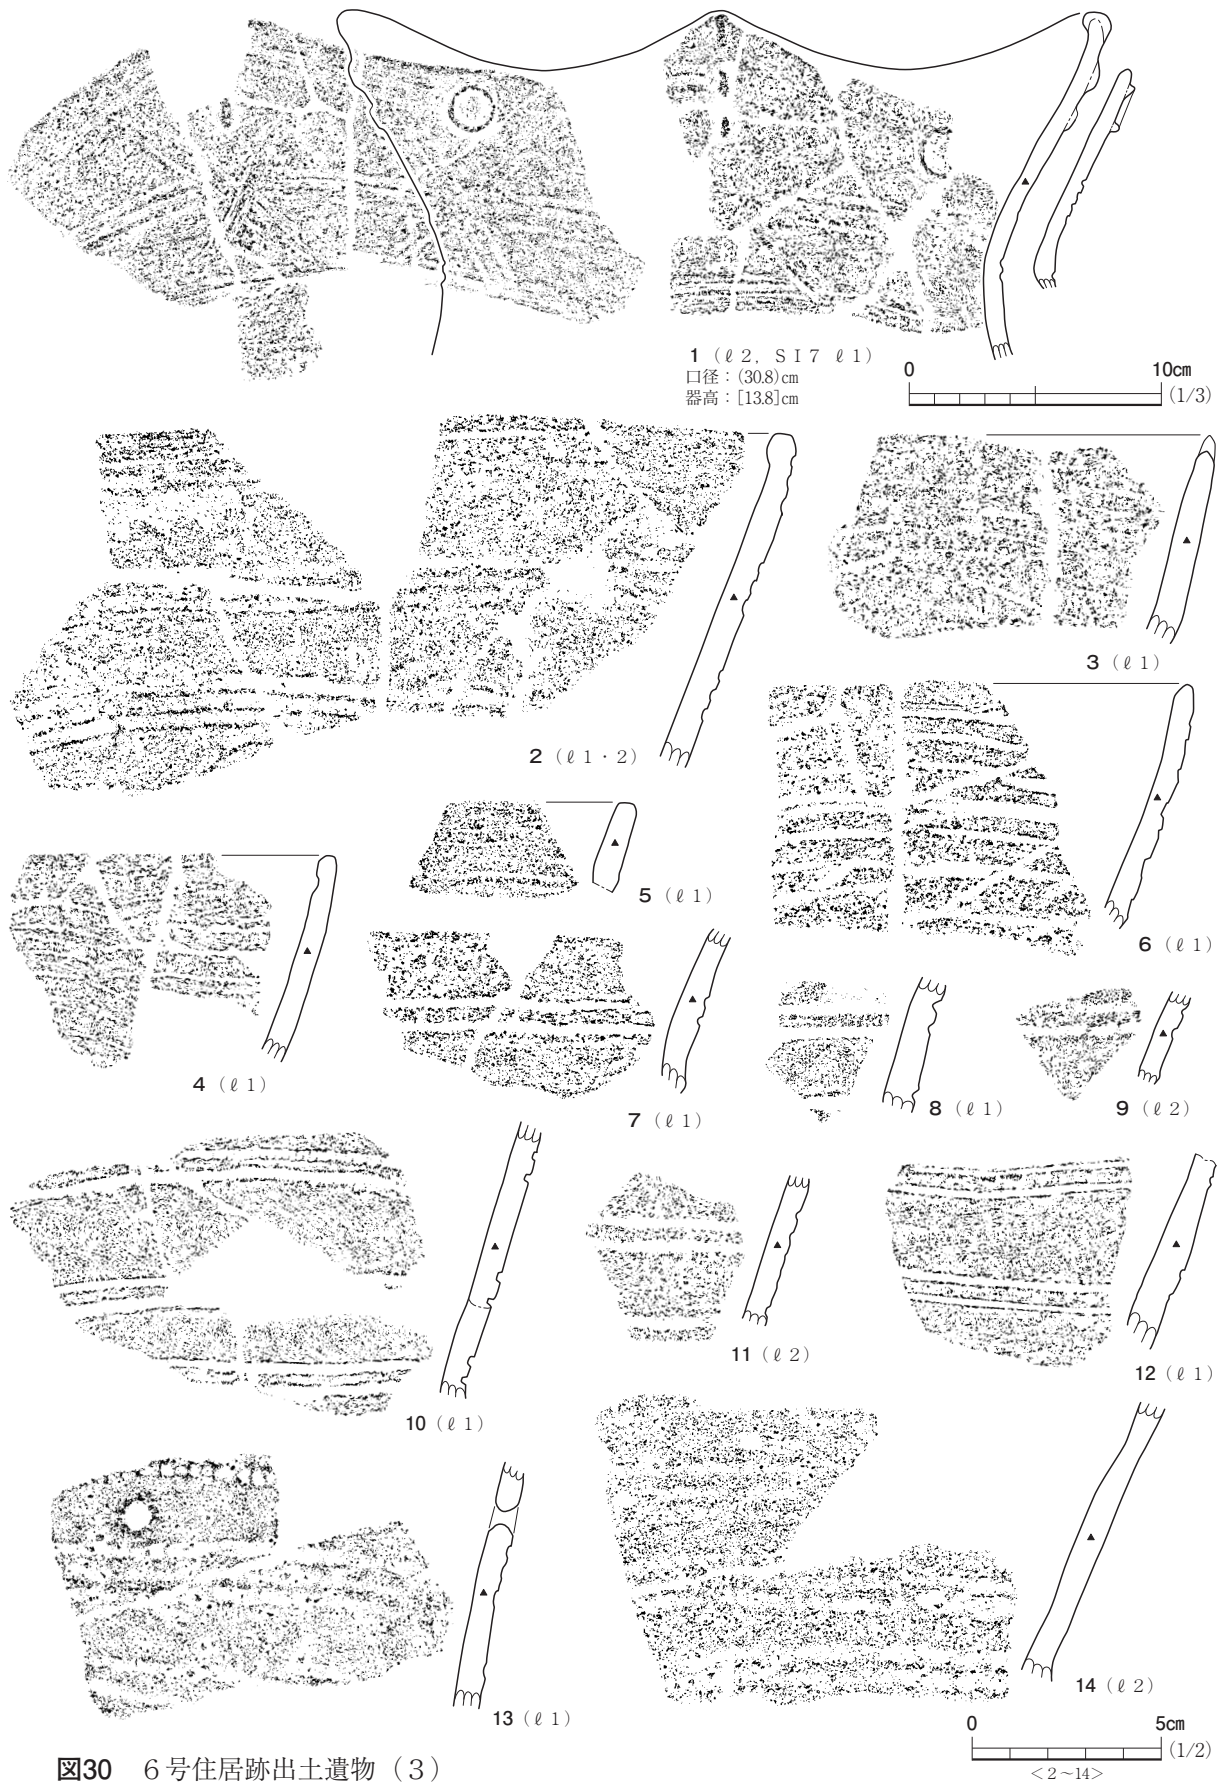 1 (ℓ 2, ＳＩ7 ℓ 1)
口径：(30.8)cm
器高：[13.8]cm
0 10cm
(1/3)
2 (ℓ 1・2)
3 (ℓ 1)
4 (ℓ 1)
5 (ℓ 1)
6 (ℓ 1)
7 (ℓ 1)
8 (ℓ 1)
9 (ℓ 2)
10 (ℓ 1)
11 (ℓ 2)
12 (ℓ 1)
13 (ℓ 1)
14 (ℓ 2)
0 5cm
(1/2)
＜2～14＞
図30 6号住居跡出土遺物（3）